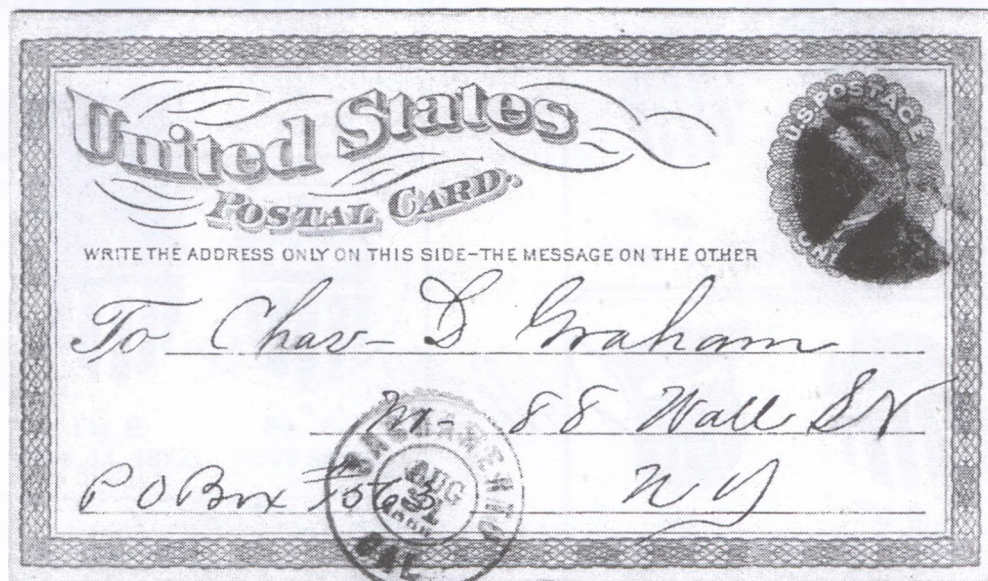 United States
POSTAL CARD.
U.S. POSTAGE
WRITE THE ADDRESS ONLY ON THIS SIDE-THE MESSAGE ON THE OTHER
To Chas- D Graham
88 Wall St
P O Box
N Y
SACRAMENTO
AUG
31
CAL